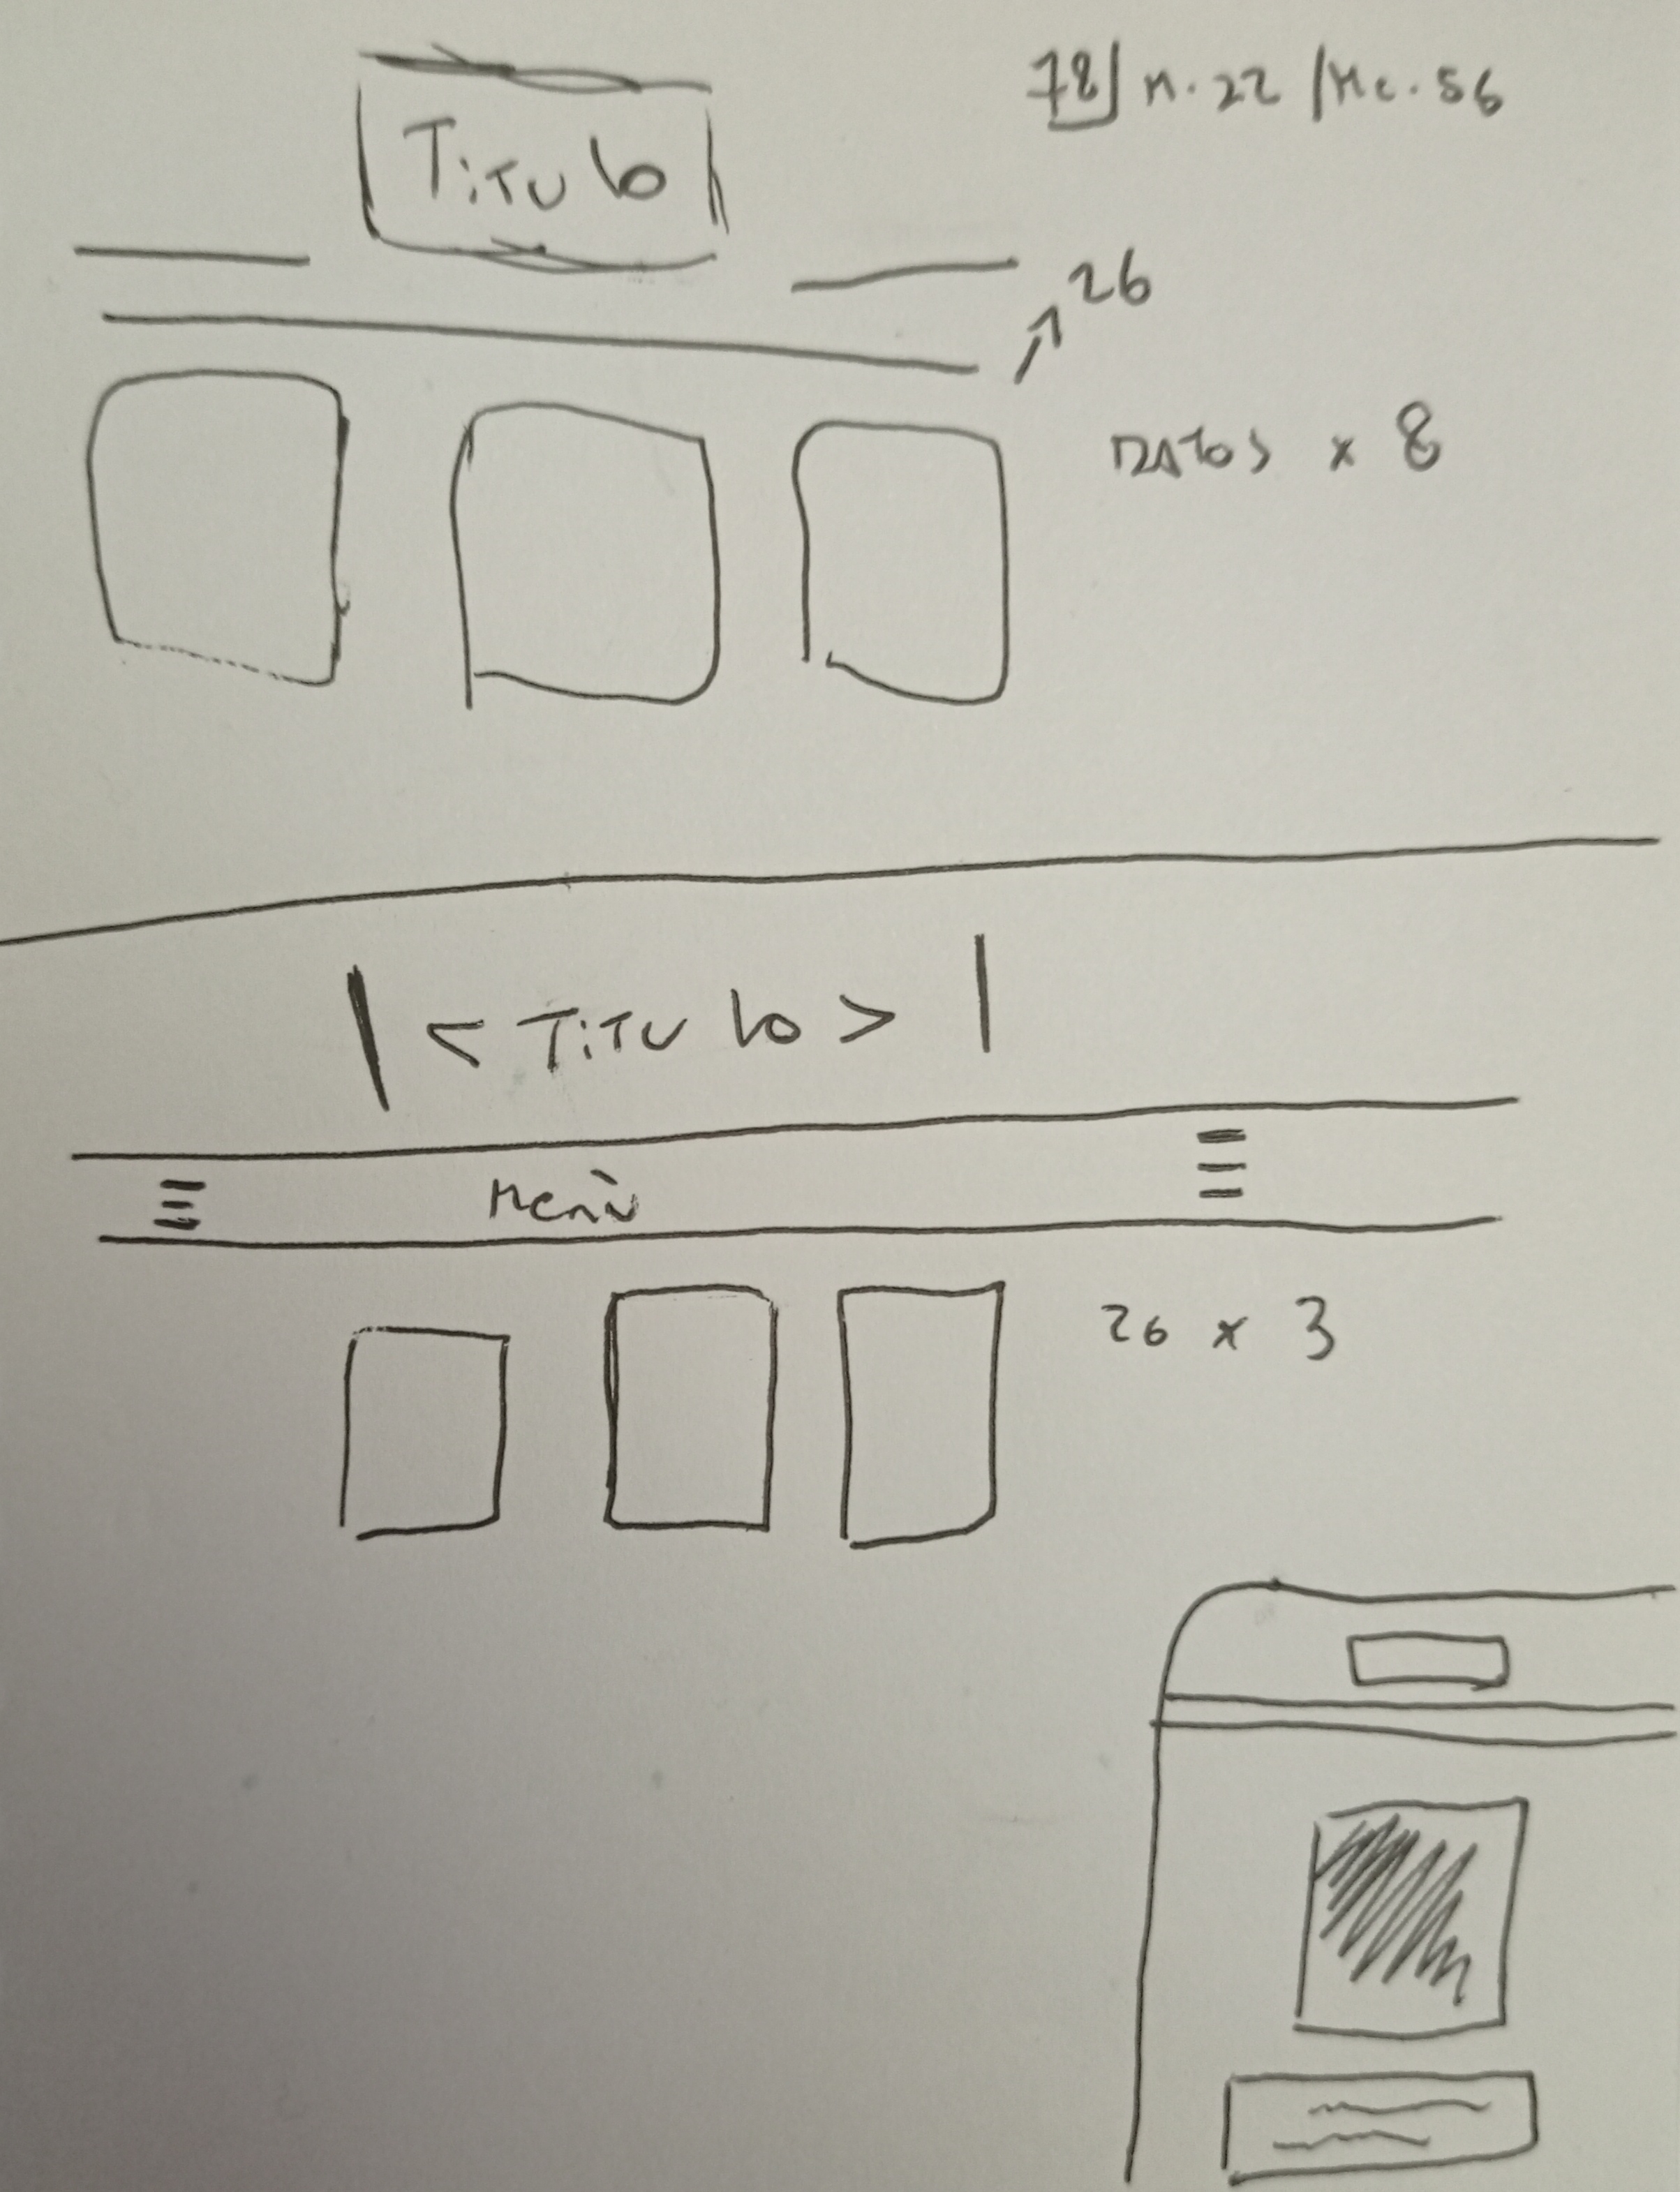 78 M. 22 / Mc. 56
Titulo
26
DATOS x 8
< Titulo >
Menù
26 x 3